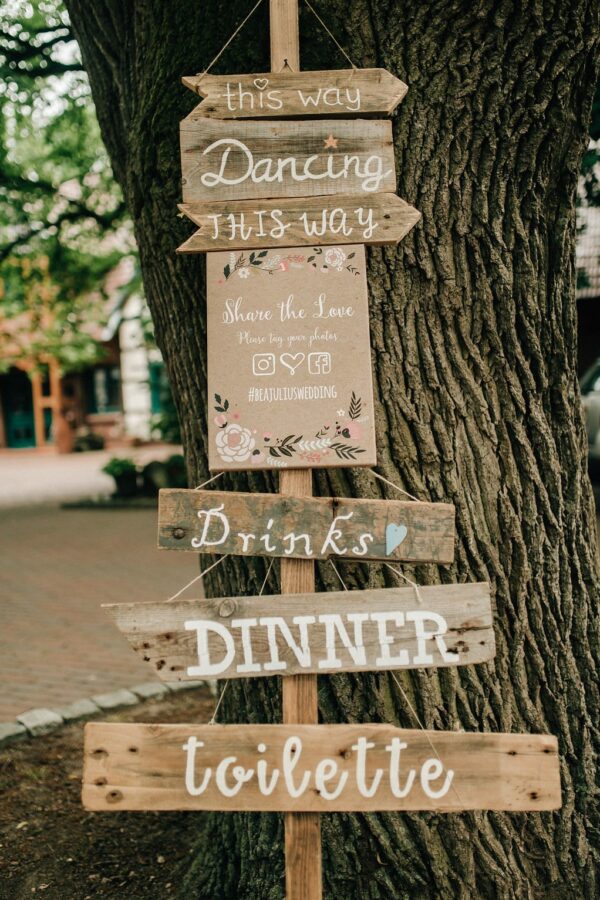 this way
Dancing
THIS WAY
Share the Love
Please tag your photos
#BEAJULIUSWEDDING
Drinks
DINNER
toilette